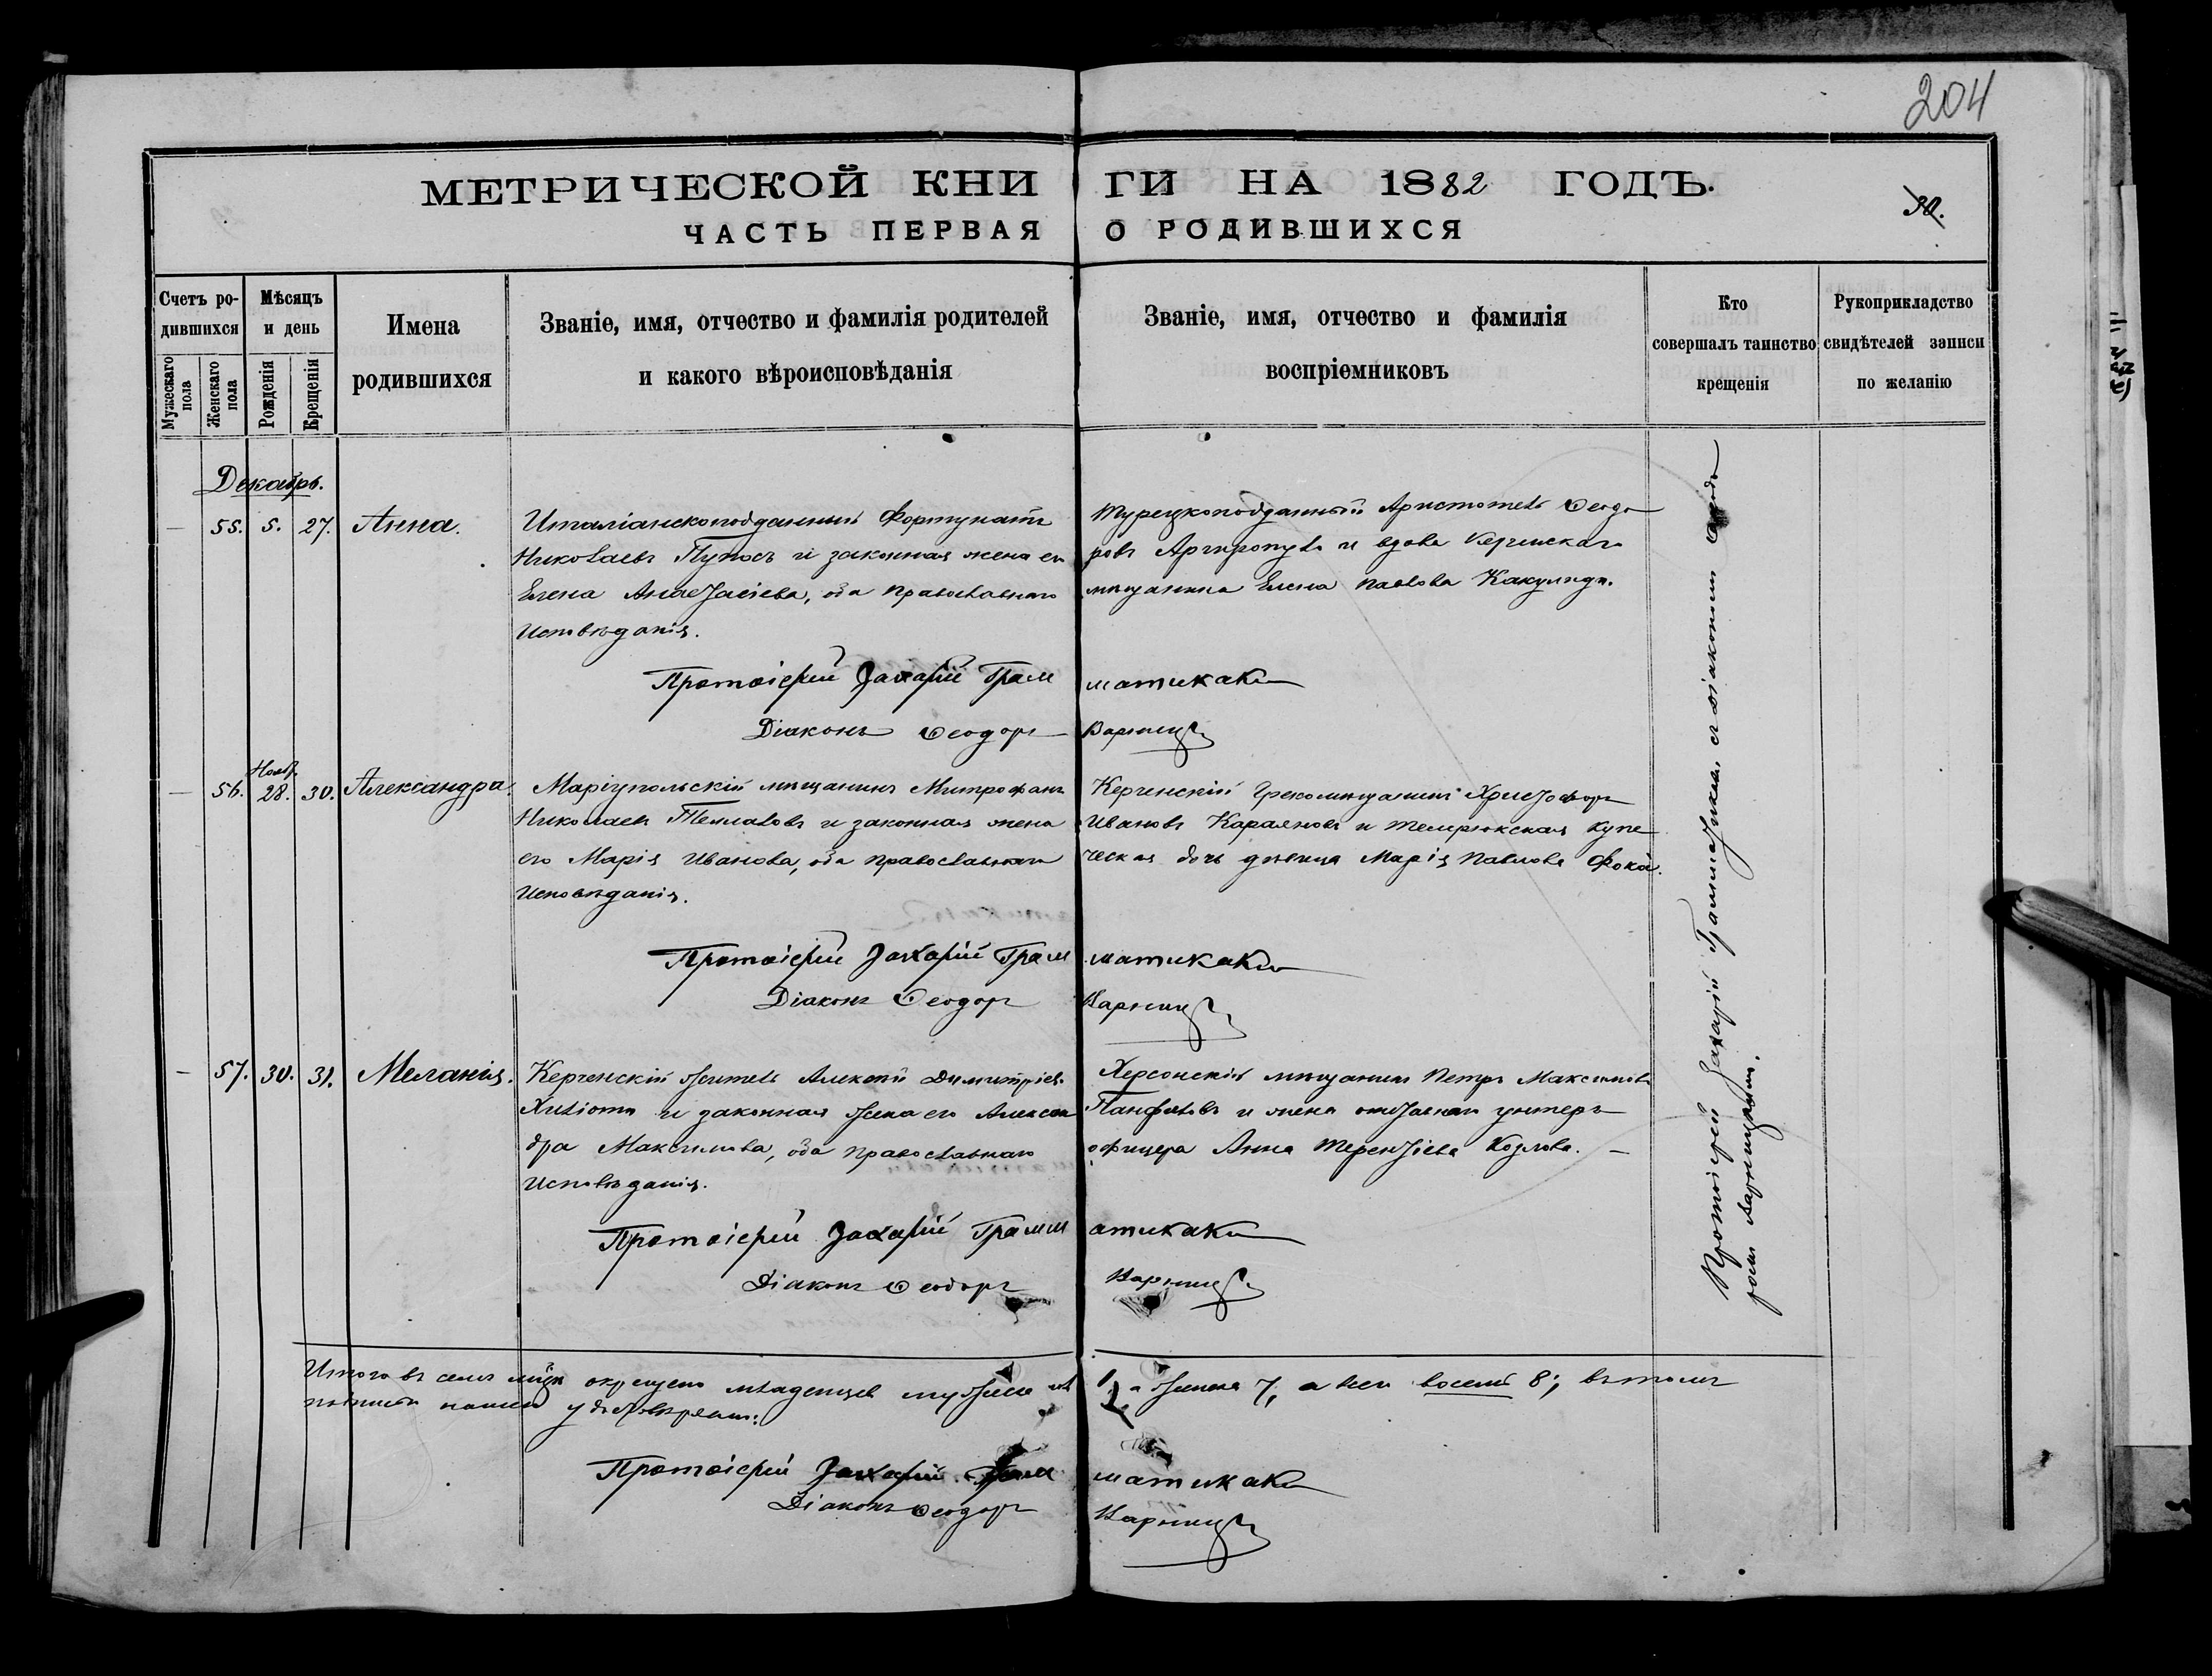 204
МЕТРИЧЕСКОЙ КНИГИ НА 1882 ГОДЪ.
30.
ЧАСТЬ ПЕРВАЯ О РОДИВШИХСЯ
Счетъ родившихся
Мужескаго пола
Женскаго пола
Мѣсяцъ и день
Рожденія
Крещенія
Имена родившихся
Званіе, имя, отчество и фамилія родителей
и какого вѣроисповѣданія
Званіе, имя, отчество и фамилія
воспріемниковъ
Кто
совершалъ таинство
крещенія
Рукоприкладство
свидѣтелей записи
по желанію
Декабрь.
— 55. 5. 27. Анна.
Италіанскоподданный Фортунатъ
Николаевъ Пуносъ и законная жена его
Елена Анастасіева, оба православнаго
Исповѣданія.
Турецкоподданный Аристотель Ѳеодо
ровъ Аргиропуло и вдова Керченскаго
мѣщанина Елена Павлова Какулиди.
Протоіерей Захарій Грамматикаки
Діаконъ Ѳеодоръ Варницкій
— 56. Ноябр. 28. 30. Александра.
Маріупольскій мѣщанинъ Митрофанъ
Николаевъ Телматовъ и законная жена
его Марія Иванова, оба православнаго
Исповѣданія.
Керченскій грекомѣщанинъ Христофоръ
Ивановъ Караяновъ и Темрюкская купе
ческая дочь дѣвица Марія Павлова Фока.
Протоіерей Захарій Грамматикаки
Діаконъ Ѳеодоръ Варницкій
— 57. 30. 31. Меланія.
Керченскій житель Алексѣй Димитріев.
Хиліоти и законная жена его Алексан
дра Максимова, оба православнаго
Исповѣданія.
Херсонскій мѣщанинъ Петръ Максимовъ
Панфиловъ и жена отставнаго унтеръ
офицера Анна Терентіева Козлова. —
Протоіерей Захарій Грамматикаки
Діаконъ Ѳеодоръ Варницкій
Протоіерей Захарій Грамматикаки съ діакономъ Ѳеодо
ромъ Варницкимъ.
Итого въ семъ м-цѣ окрещено младенцев мужеска пола 1, а женска 7, а всего восемь 8; въ томъ
подписомъ нашимъ удостовѣряемъ:
Протоіерей Захарій Грамматикаки
Діаконъ Ѳеодоръ Варницкій